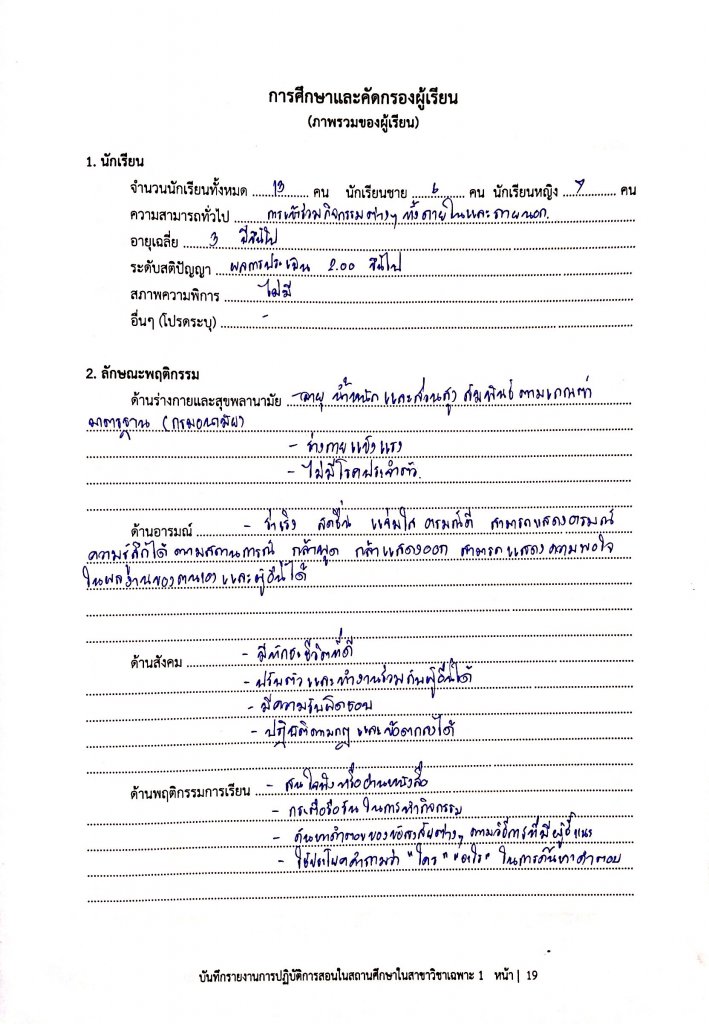 การศึกษาและคัดกรองผู้เรียน
(ภาพรวมของผู้เรียน)
1. นักเรียน
จำนวนนักเรียนทั้งหมด 13 คน นักเรียนชาย 6 คน นักเรียนหญิง 7 คน
ความสามารถทั่วไป การเข้าร่วมกิจกรรมต่างๆ ทั้งภายในและภายนอก
อายุเฉลี่ย 3 ปีขึ้นไป
ระดับสติปัญญา ผลการประเมิน 2.00 ขึ้นไป
สภาพความพิการ ไม่มี
อื่นๆ (โปรดระบุ) -
2. ลักษณะพฤติกรรม
ด้านร่างกายและสุขพลานามัย - อายุ น้ำหนัก และส่วนสูง สัมพันธ์ตามเกณฑ์
มาตรฐาน (กรมอนามัย)
- ร่างกายแข็งแรง
- ไม่มีโรคประจำตัว
ด้านอารมณ์ - ร่าเริง สดชื่น แจ่มใส อารมณ์ดี สามารถแสดงอารมณ์
ความรู้สึกได้ตามสถานการณ์ กล้าพูด กล้าแสดงออก สามารถแสดงความพอใจ
ในผลงานของตนเองและผู้อื่นได้
ด้านสังคม - มีทักษะชีวิตที่ดี
- ปรับตัวและทำงานร่วมกับผู้อื่นได้
- มีความรับผิดชอบ
- ปฏิบัติตามกฎและข้อตกลงได้
ด้านพฤติกรรมการเรียน - สนใจฟังหรืออ่านหนังสือ
- กระตือรือร้นในการทำกิจกรรม
- ค้นหาคำตอบของข้อสงสัยต่างๆ ตามวิธีการที่มีผู้ชี้แนะ
- ใช้ประโยคคำถามว่า "ใคร" "อะไร" ในการค้นหาคำตอบ
บันทึกรายงานการปฏิบัติการสอนในสถานศึกษาในสาขาวิชาเฉพาะ 1 หน้า | 19